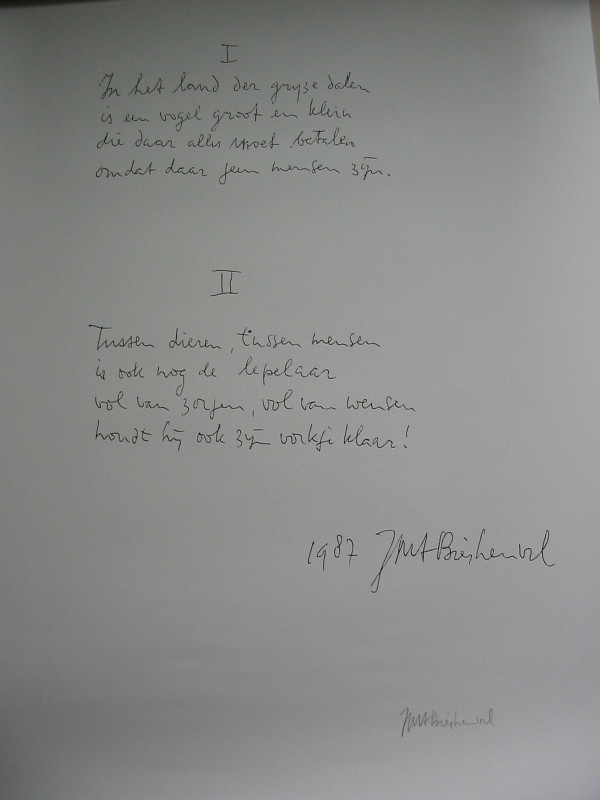 I
In het land der gryze dalen
is een vogel groot en klein
die daar alles moet betalen
omdat daar geen mensen zÿn.
II
Tussen dieren, tussen mensen
is ook nog de lepelaar
vol van zorgen, vol van wensen
houdt hÿ ook zÿn vorkje klaar!
1987 JMA Biesheuvel
JMA Biesheuvel